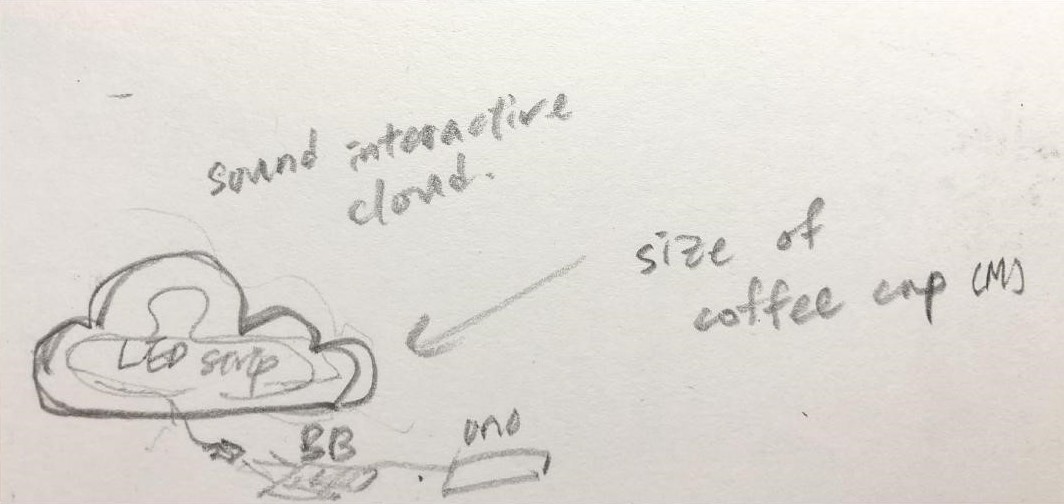 sound interactive
cloud.
size of
coffee cup (M)
LED strip
BB
uno